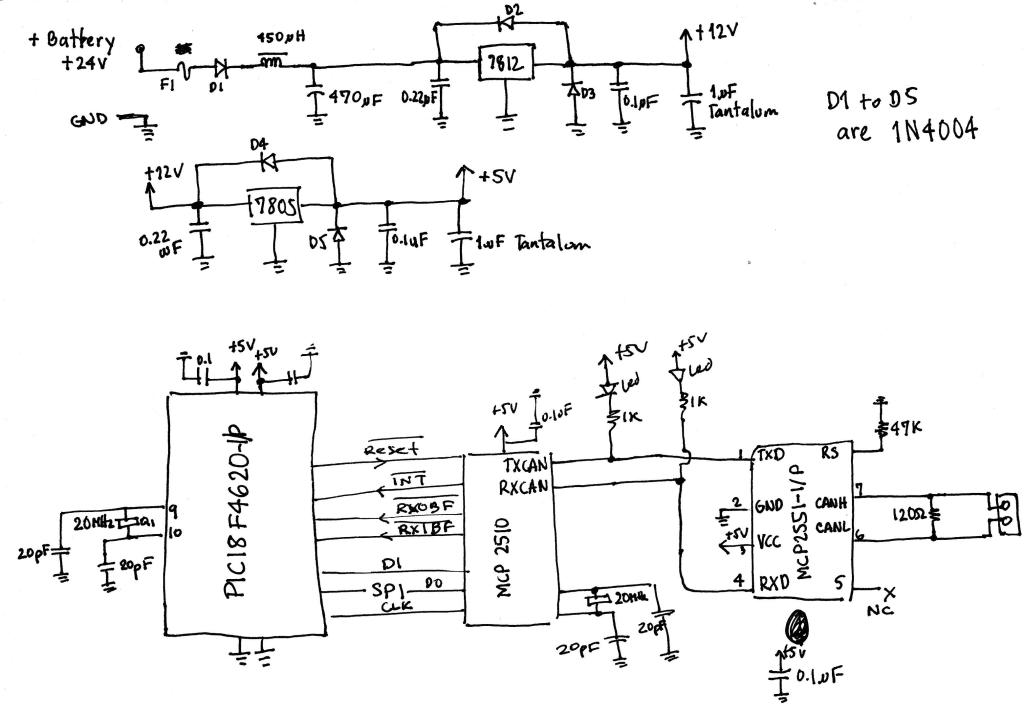 + Battery
+24V
F1
D1
450µH
470µF
D2
7812
0.22µF
D3
0.1µF
+12V
1µF
Tantalum
GND
D1 to D5
are 1N4004
+12V
D4
7805
0.22
µF
D5
0.1uF
+5V
1µF Tantalum
0.1
+5V
+5V
PIC18F4620-I/P
9
10
20MHz
Q1
20pF
20pF
Reset
INT
RX0BF
RX1BF
DI
SPI
DO
CLK
+5V
0.1uF
TXCAN
RXCAN
MCP 2510
20MHz
20pF
20pF
+5V
Led
1K
+5V
Led
1K
1
TXD
2
GND
+5V
3
VCC
4
RXD
MCP2551-I/P
RS
47K
7
CANH
CANL
6
5
X
NC
120Ω
+5V
0.1µF